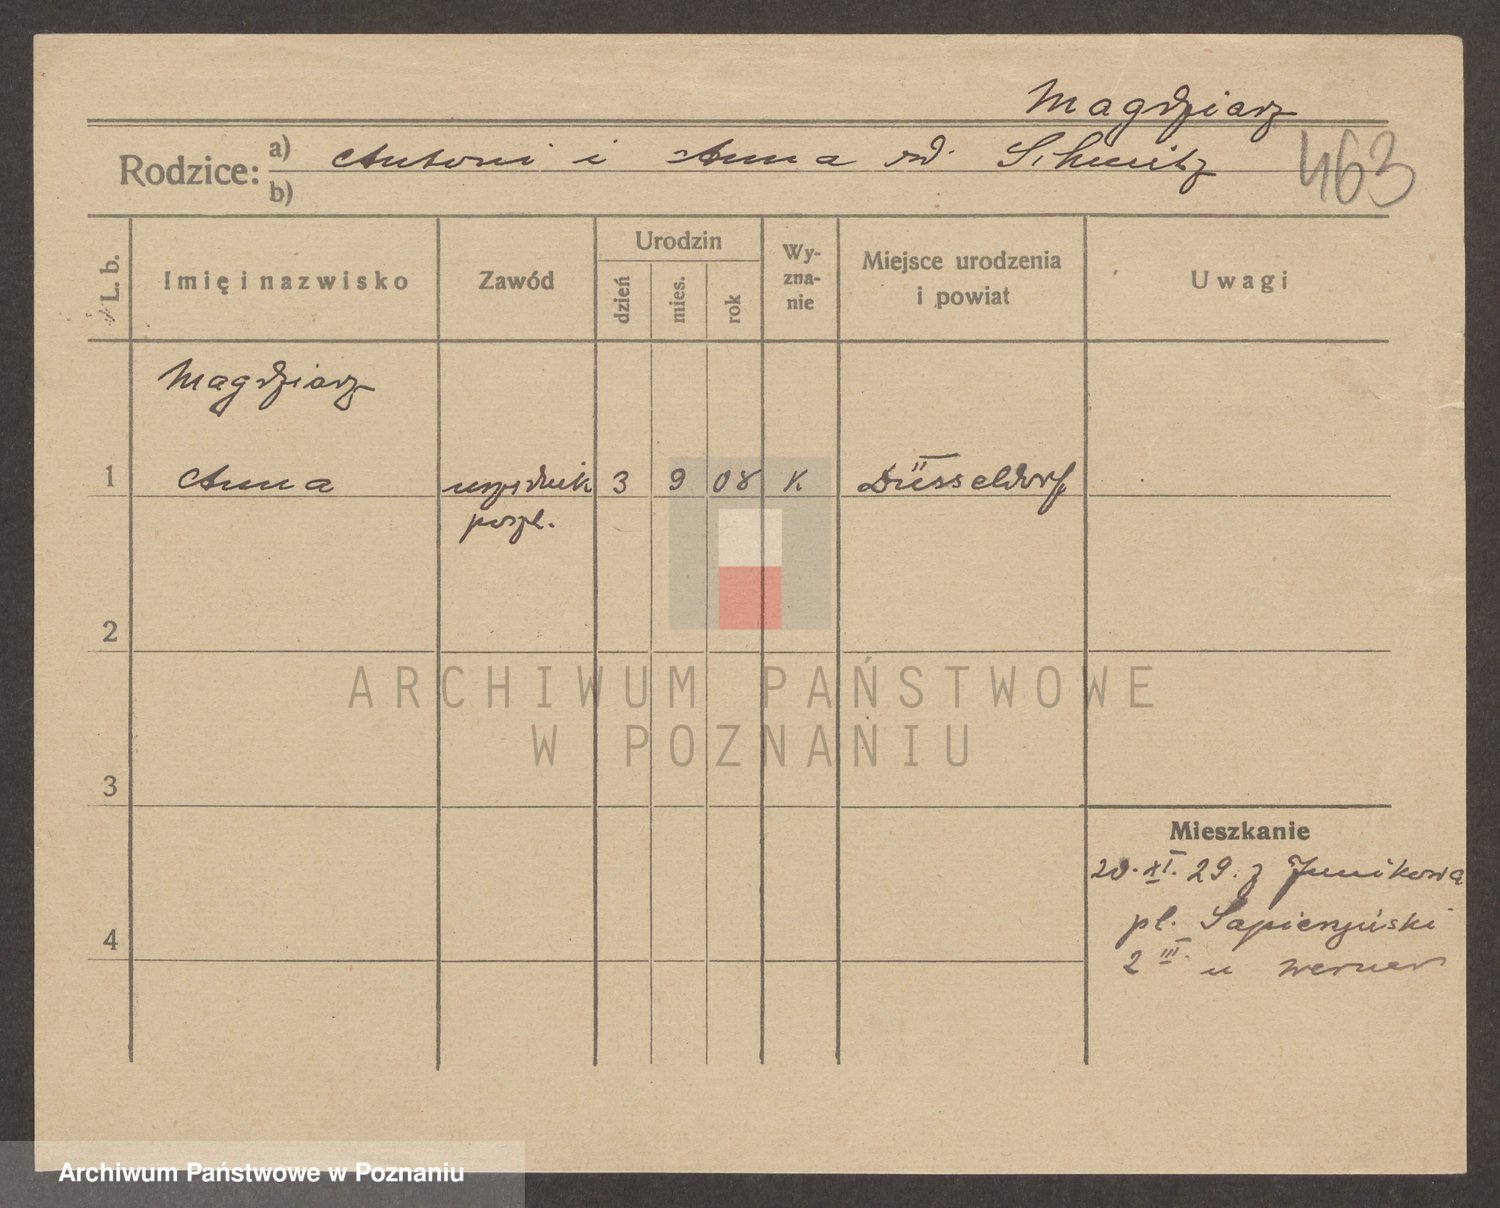 Magdziarz
Rodzice: a) Antoni i Anna rd. Schmitz
b)
463
L. b. Imię i nazwisko Zawód Urodzin dzień mies. rok Wyznanie Miejsce urodzenia i powiat Uwagi
Magdziarz
1 Anna urzędnik 3 9 08 k Düsseldorf
poszt.
2
ARCHIWUM PAŃSTWOWE
W POZNANIU
3
Mieszkanie
20. XI. 29. z Junikowa
4 pl. Sapierzyński
2 III. u Werner
Archiwum Państwowe w Poznaniu